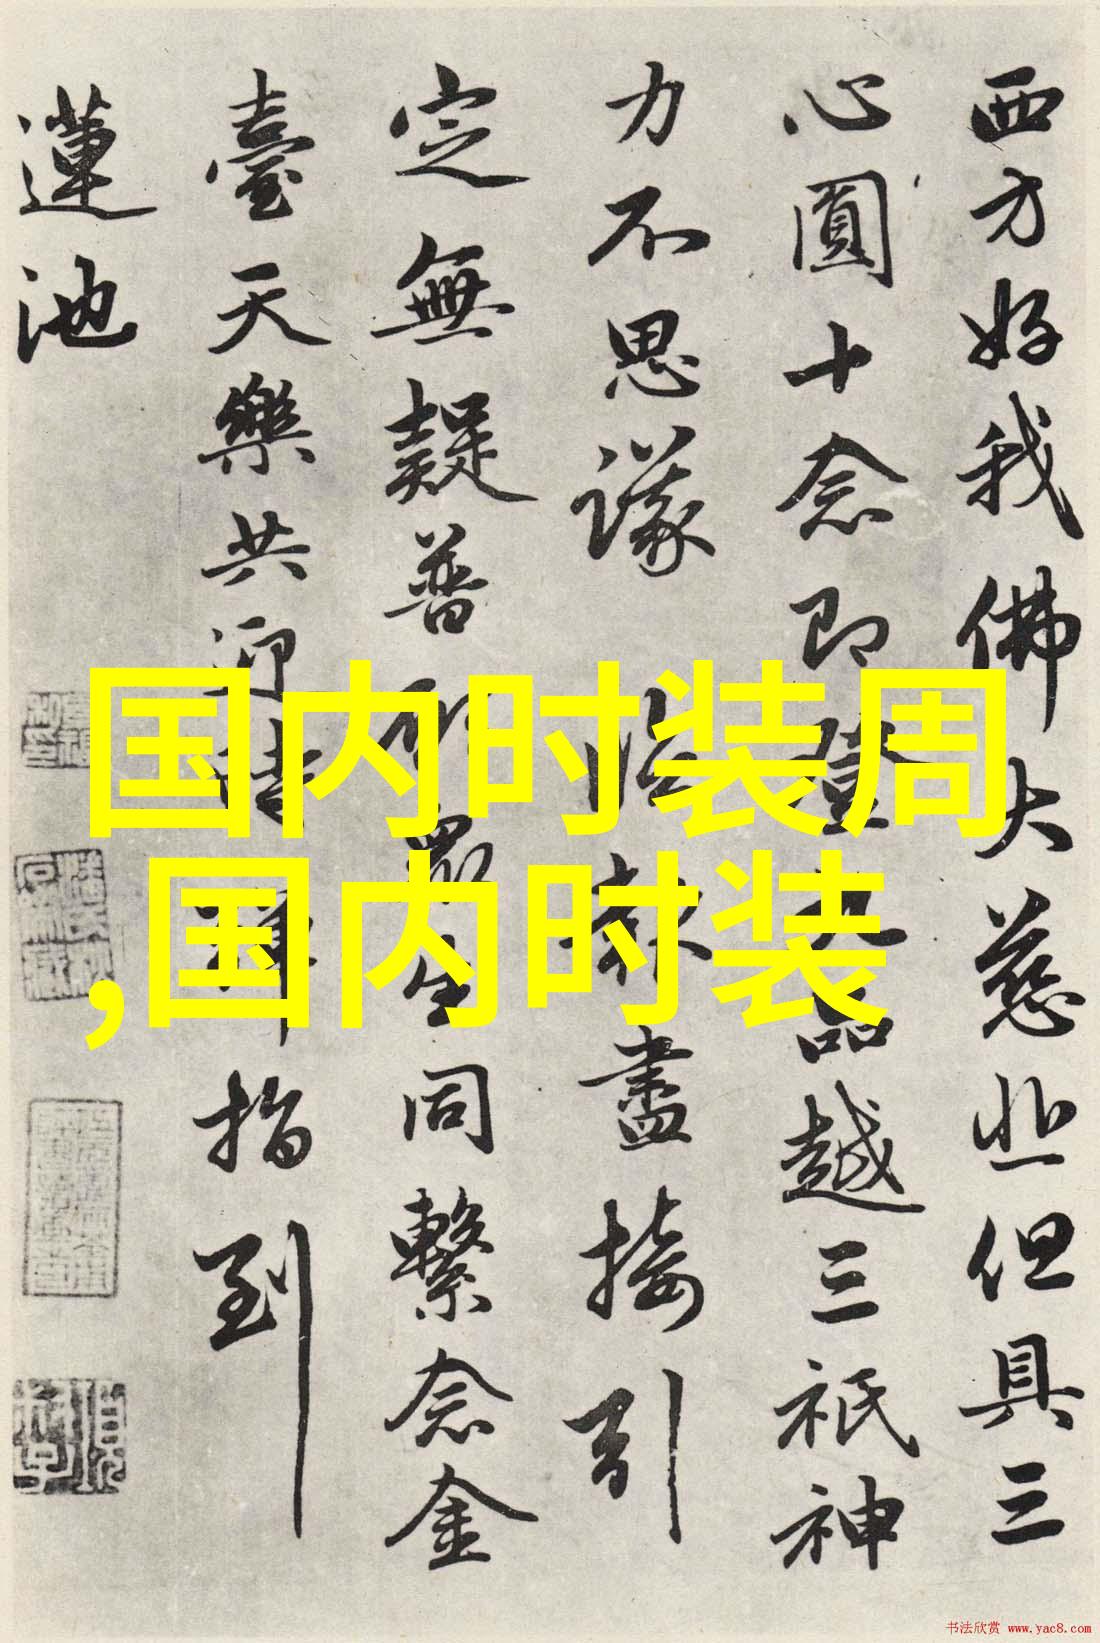 西方好我佛大慈悲但具三
心圓十念即證九品越三祇神
力不思議臨報盡接引
定無疑普眾生同繫念金
臺天樂共迎請彈指到
蓮池
国内时装周
,国内时装
书法欣赏 www.yac8.com